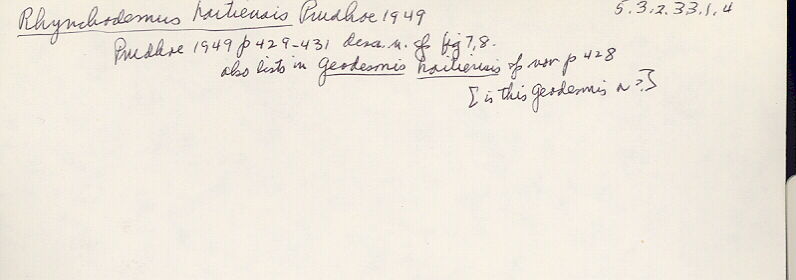 Rhynchodemus haitiensis Prudhoe 1949 5.3.2.33.1.4
Prudhoe 1949 p 429-431 desc. n. sp fig 7,8.
also lists in Geodesmis haitiensis sp nov p 428
[is this Geodesmis n ?]